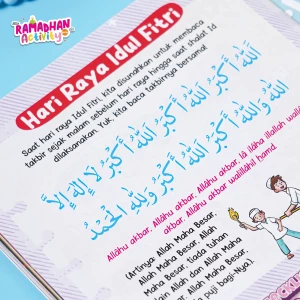 RAMADHAN
Activity
Hari Raya Idul Fitri
Saat hari raya Idul Fitri, kita disunahkan untuk membaca
takbir sejak malam sebelum hari raya hingga saat shalat Id
dilaksanakan. Yuk, kita baca takbirnya bersama!
اَللّٰهُ أَكْبَرُ اَللّٰهُ أَكْبَرُ اَللّٰهُ أَكْبَرُ لَا إِلٰهَ إِلَّا
اللّٰهُ وَاللّٰهُ أَكْبَرُ اَللّٰهُ أَكْبَرُ وَلِلّٰهِ الْحَمْدُ
Allâhu akbar, Allâhu akbar, Allâhu akbar, lâ ilâha illallah wallâ
akbar, Allâhu akbar walillâhil hamd.
(Artinya: Allah Maha Besar,
Allah Maha Besar, Allah
Maha Besar, tiada tuhan
lain Allah dan Allah Maha
Besar, Allah Maha
puji bagi-Nya).